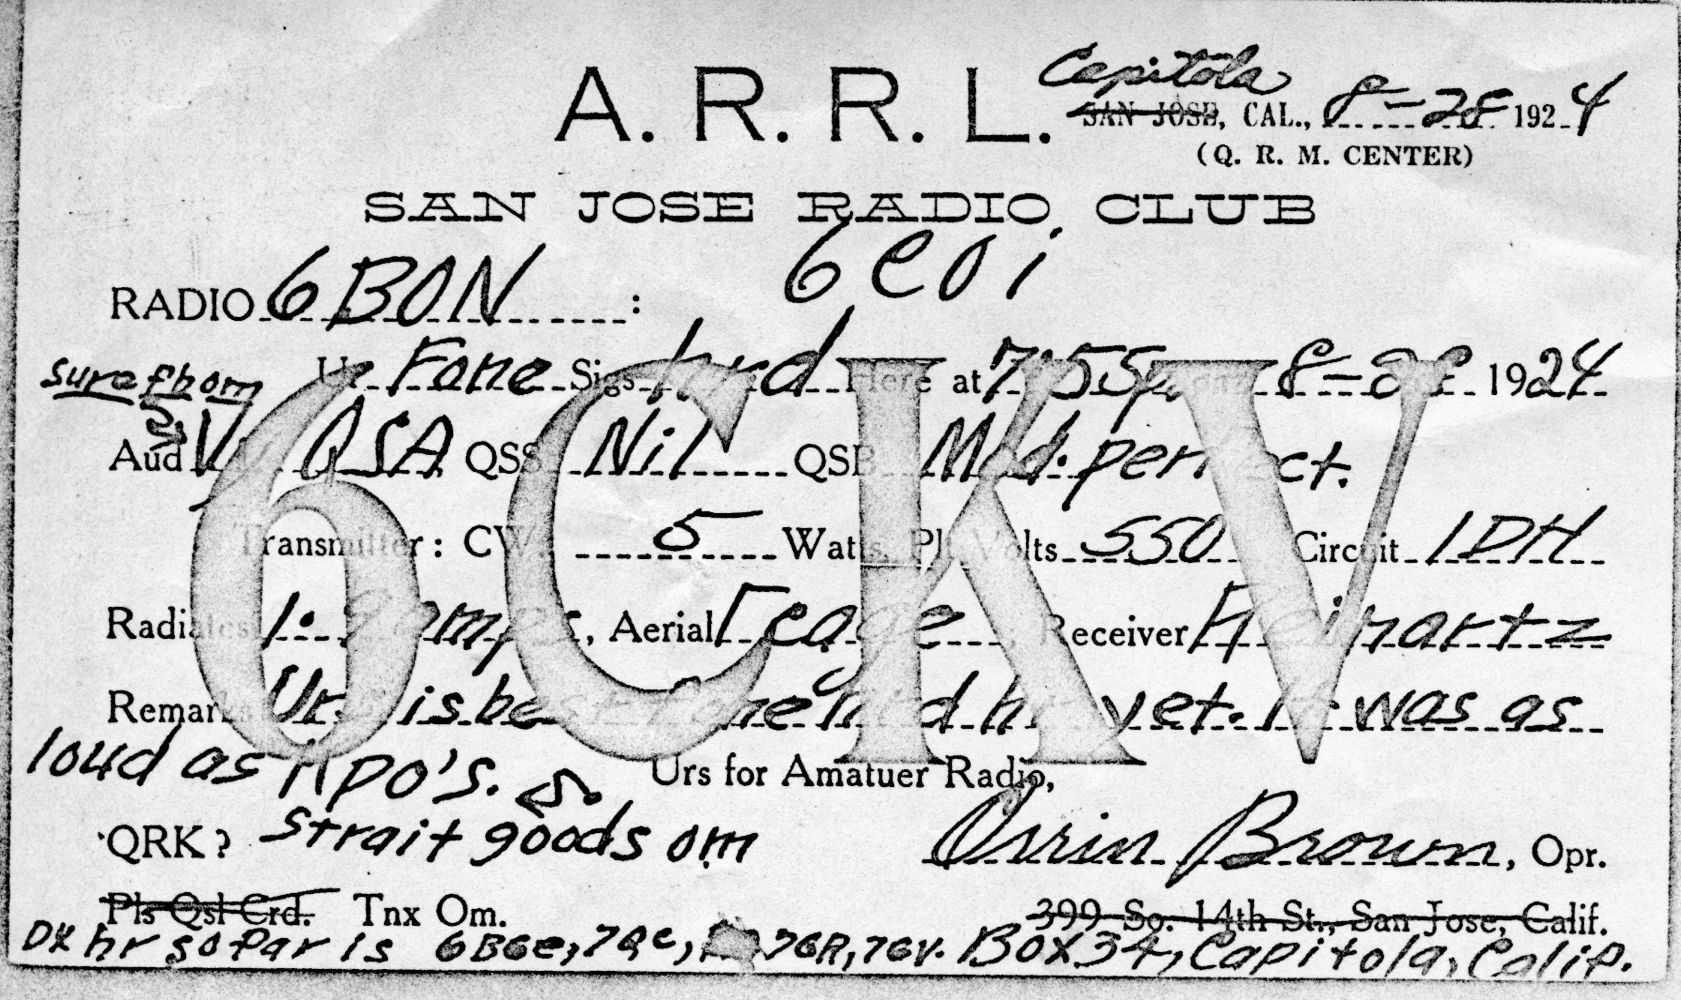 A. R. R. L.
Capitola
SAN JOSE, CAL., 8-28 1924
(Q. R. M. CENTER)
SAN JOSE RADIO CLUB
RADIO 6BON : 6COI
Ur Fone Sigs hrd Here at 7:55 pm on 8-28 1924
sure
Aud Vy QSA QSS Nil QSB Mod. perfect.
Transmitter: CW. 5 Watts, Pl. Volts 550 Circuit IDH
Radiates 1. amper, Aerial cage, Receiver Reinartz
Remarks Urs is best fone hrd hr yet. It was as
loud as KPO's.
Urs for Amatuer Radio,
QRK? strait goods om
Orrin Brown, Opr.
Pls Qsl Crd. Tnx Om.
399 So. 14th St., San Jose, Calif.
DX hr so far is 6BGe, 7Qc, 7GR, 7GV. Box 34, Capitola, Calif.
6CKV